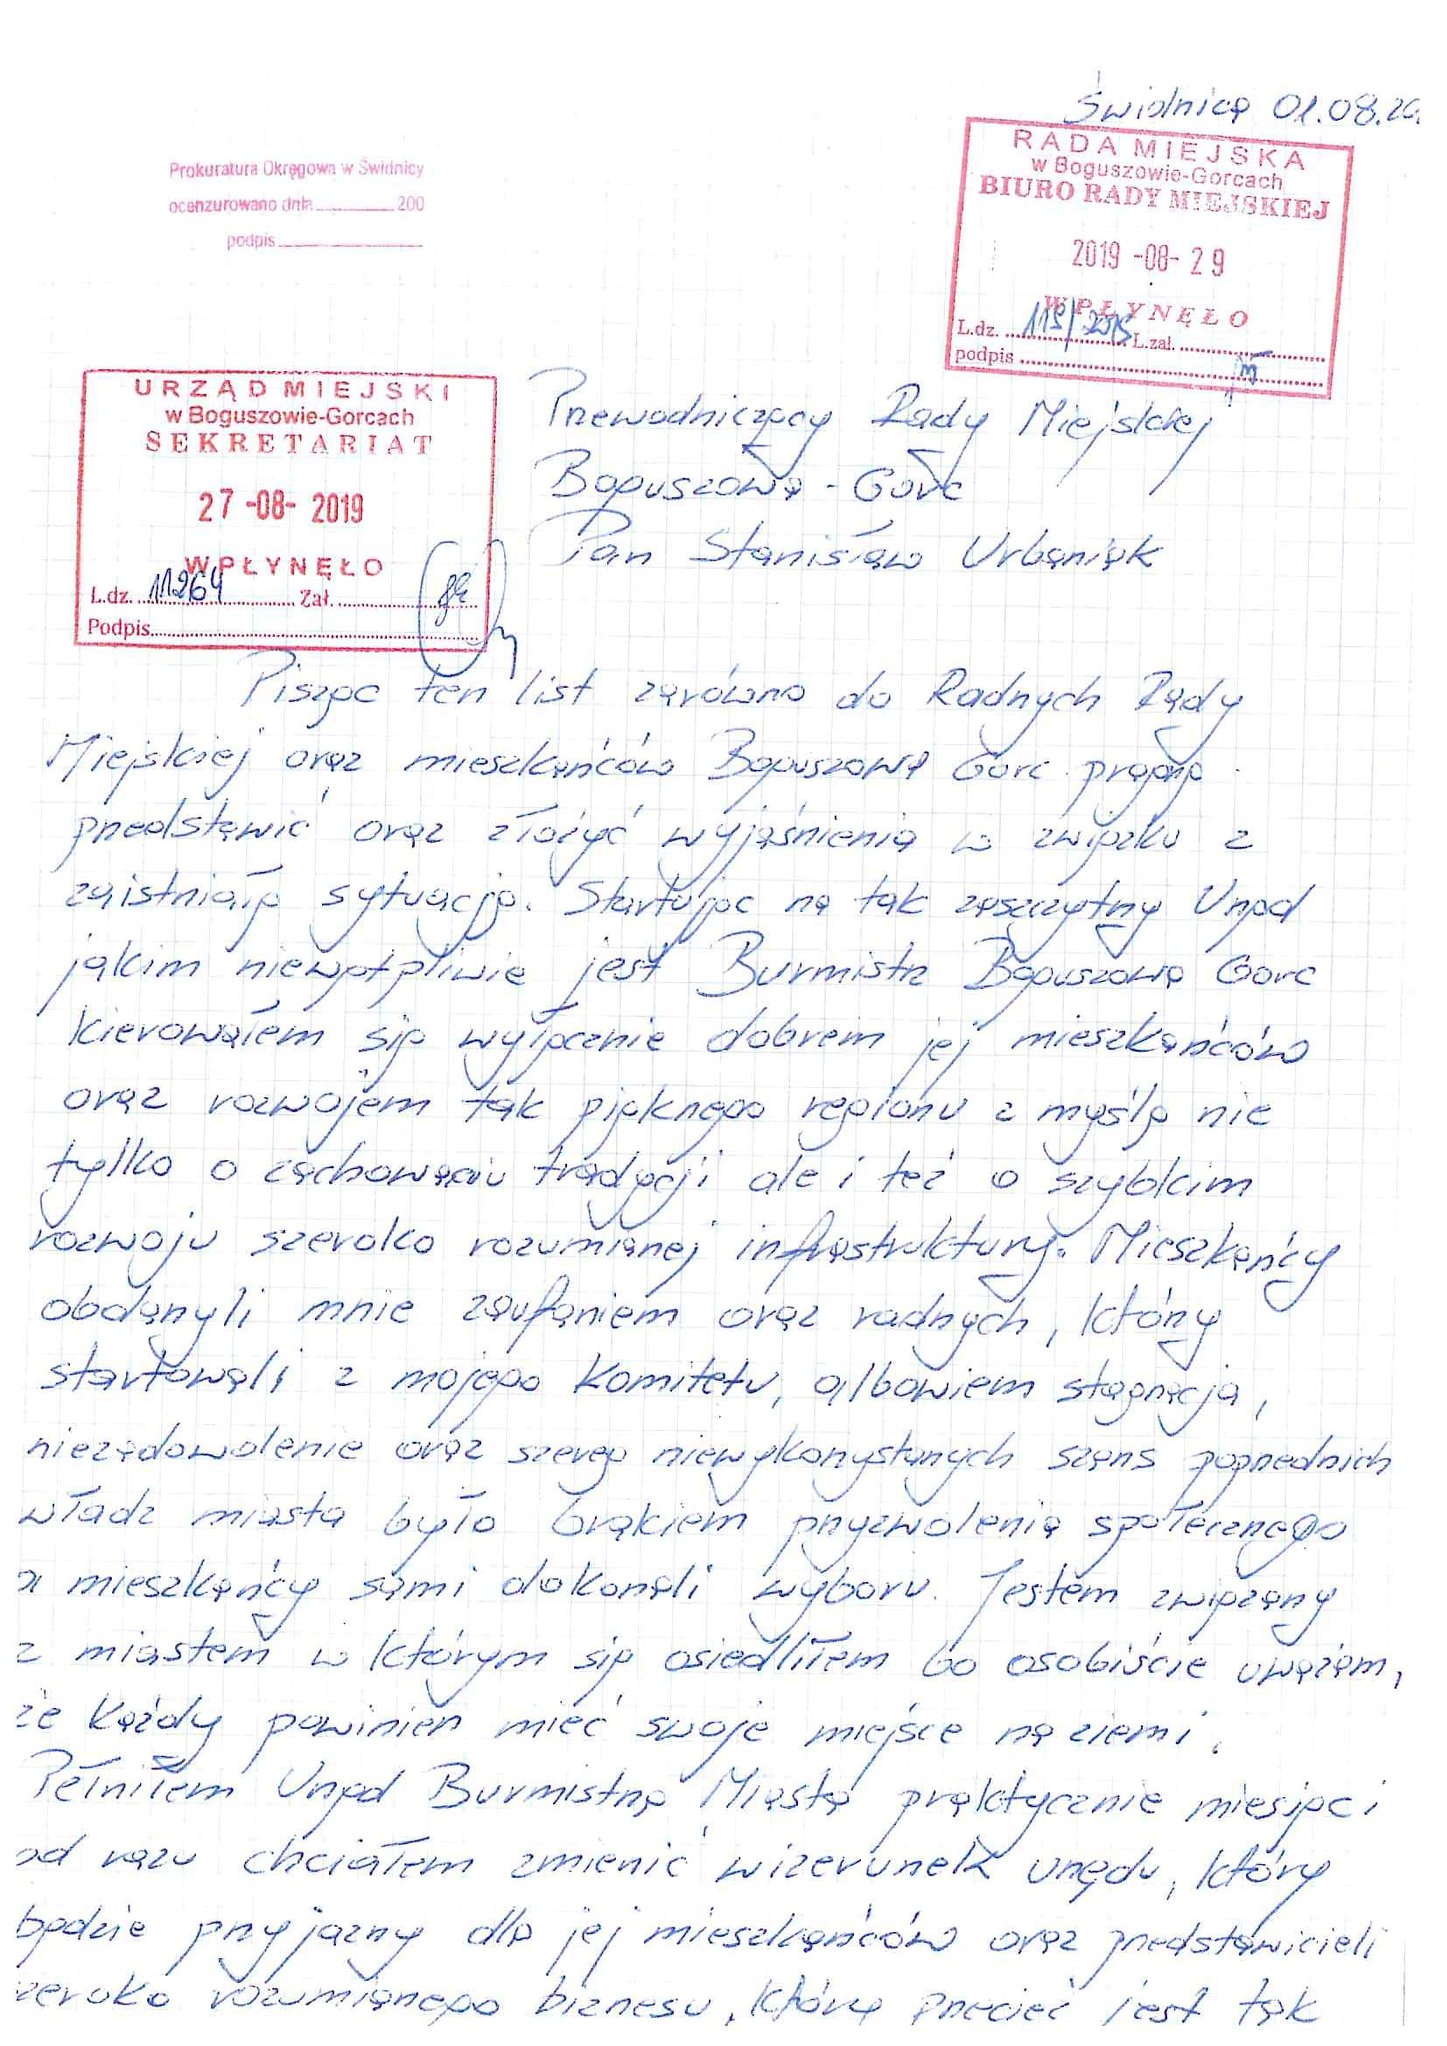 Świdnica 01.08.20
Prokuratura Okręgowa w Świdnicy
ocenzurowano dnia 200
podpis
RADA MIEJSKA
w Boguszowie-Gorcach
BIURO RADY MIEJSKIEJ
2019 -08- 29
WPŁYNĘŁO
L.dz. 119/2019 L.zał.
podpis
URZĄD MIEJSKI
w Boguszowie-Gorcach
SEKRETARIAT
27 -08- 2019
WPŁYNĘŁO
L.dz. 11264 Zał.
Podpis
Przewodniczący Rady Miejskiej
Boguszowa - Gorc
Pan Stanisław Urbaniak
Pisząc ten list zarówno do Radnych Rady
Miejskiej oraz mieszkańców Boguszowa Gorc pragnę
przedstawić oraz złożyć wyjaśnienia w związku z
zaistniałą sytuacją. Startując na tak zaszczytny Urząd
jakim niewątpliwie jest Burmistrz Boguszowa Gorc
kierowałem się wyłącznie dobrem jej mieszkańców
oraz rozwojem tak pięknego regionu z myślą nie
tylko o zachowaniu tradycji ale i też o szybkim
rozwoju szeroko rozumianej infrastruktury. Mieszkańcy
obdarzyli mnie zaufaniem oraz radnych, którzy
startowali z mojego Komitetu, albowiem stagnacja,
niezadowolenie oraz szereg niewykorzystanych szans poprzednich
władz miasta było brakiem przyzwolenia społecznego
a mieszkańcy sami dokonali wyboru. Jestem związany
z miastem w którym się osiedliłem bo osobiście uważam,
że każdy powinien mieć swoje miejsce na ziemi.
Pełniłem Urząd Burmistrza Miasta praktycznie miesiąc i
od razu chciałem zmienić wizerunek urzędu, który
będzie przyjazny dla jej mieszkańców oraz przedstawicieli
zeroko rozumianego biznesu, która przecież jest tak